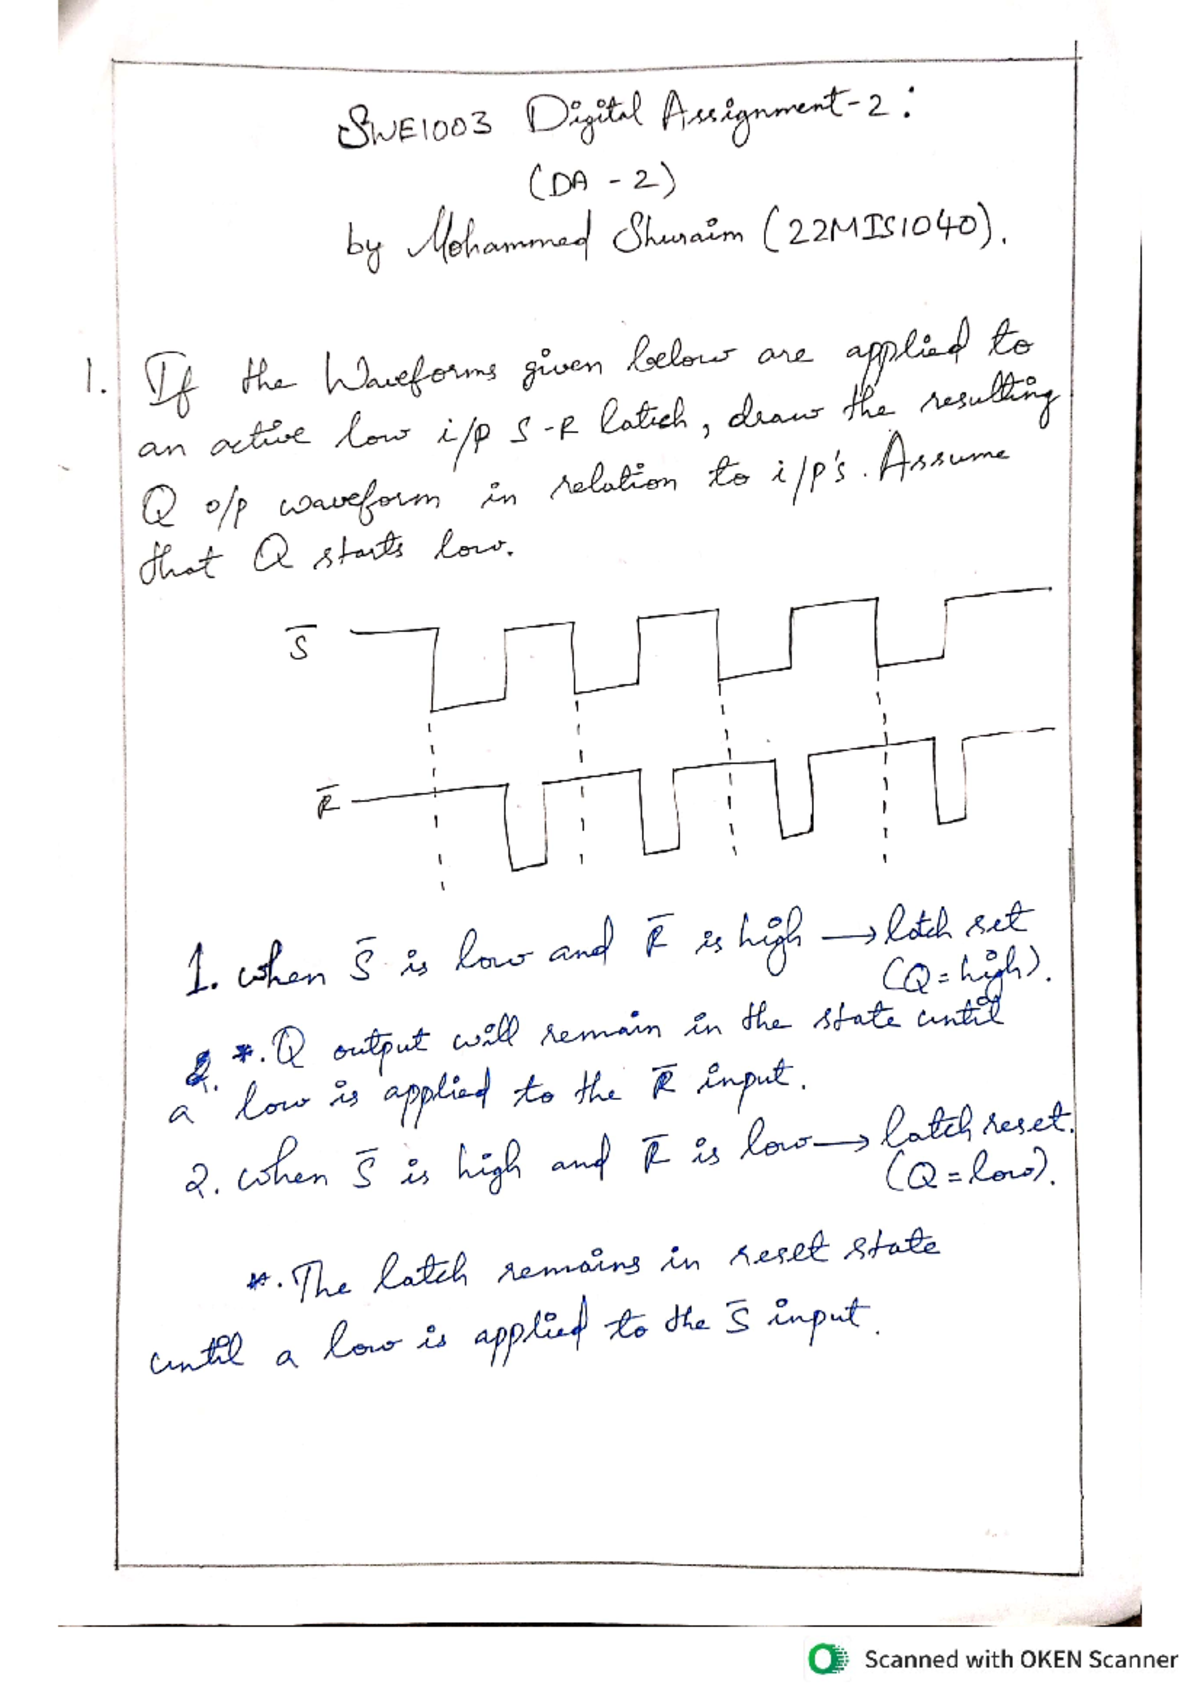 SWE1003 Digital Assignment-2:
(DA - 2)
by Mohammed Shuraim (22MIS1040).
1. If the Waveforms given below are applied to
an active low i/p S-R latch, draw the resulting
Q o/p waveform in relation to i/p's. Assume
that Q starts low.
S̅
R̅
1. when S̅ is low and R̅ is high → latch set
(Q = high).
*. Q output will remain in the state until
a low is applied to the R̅ input.
2. when S̅ is high and R̅ is low → latch reset.
(Q = low).
*. The latch remains in reset state
until a low is applied to the S̅ input.
Scanned with OKEN Scanner